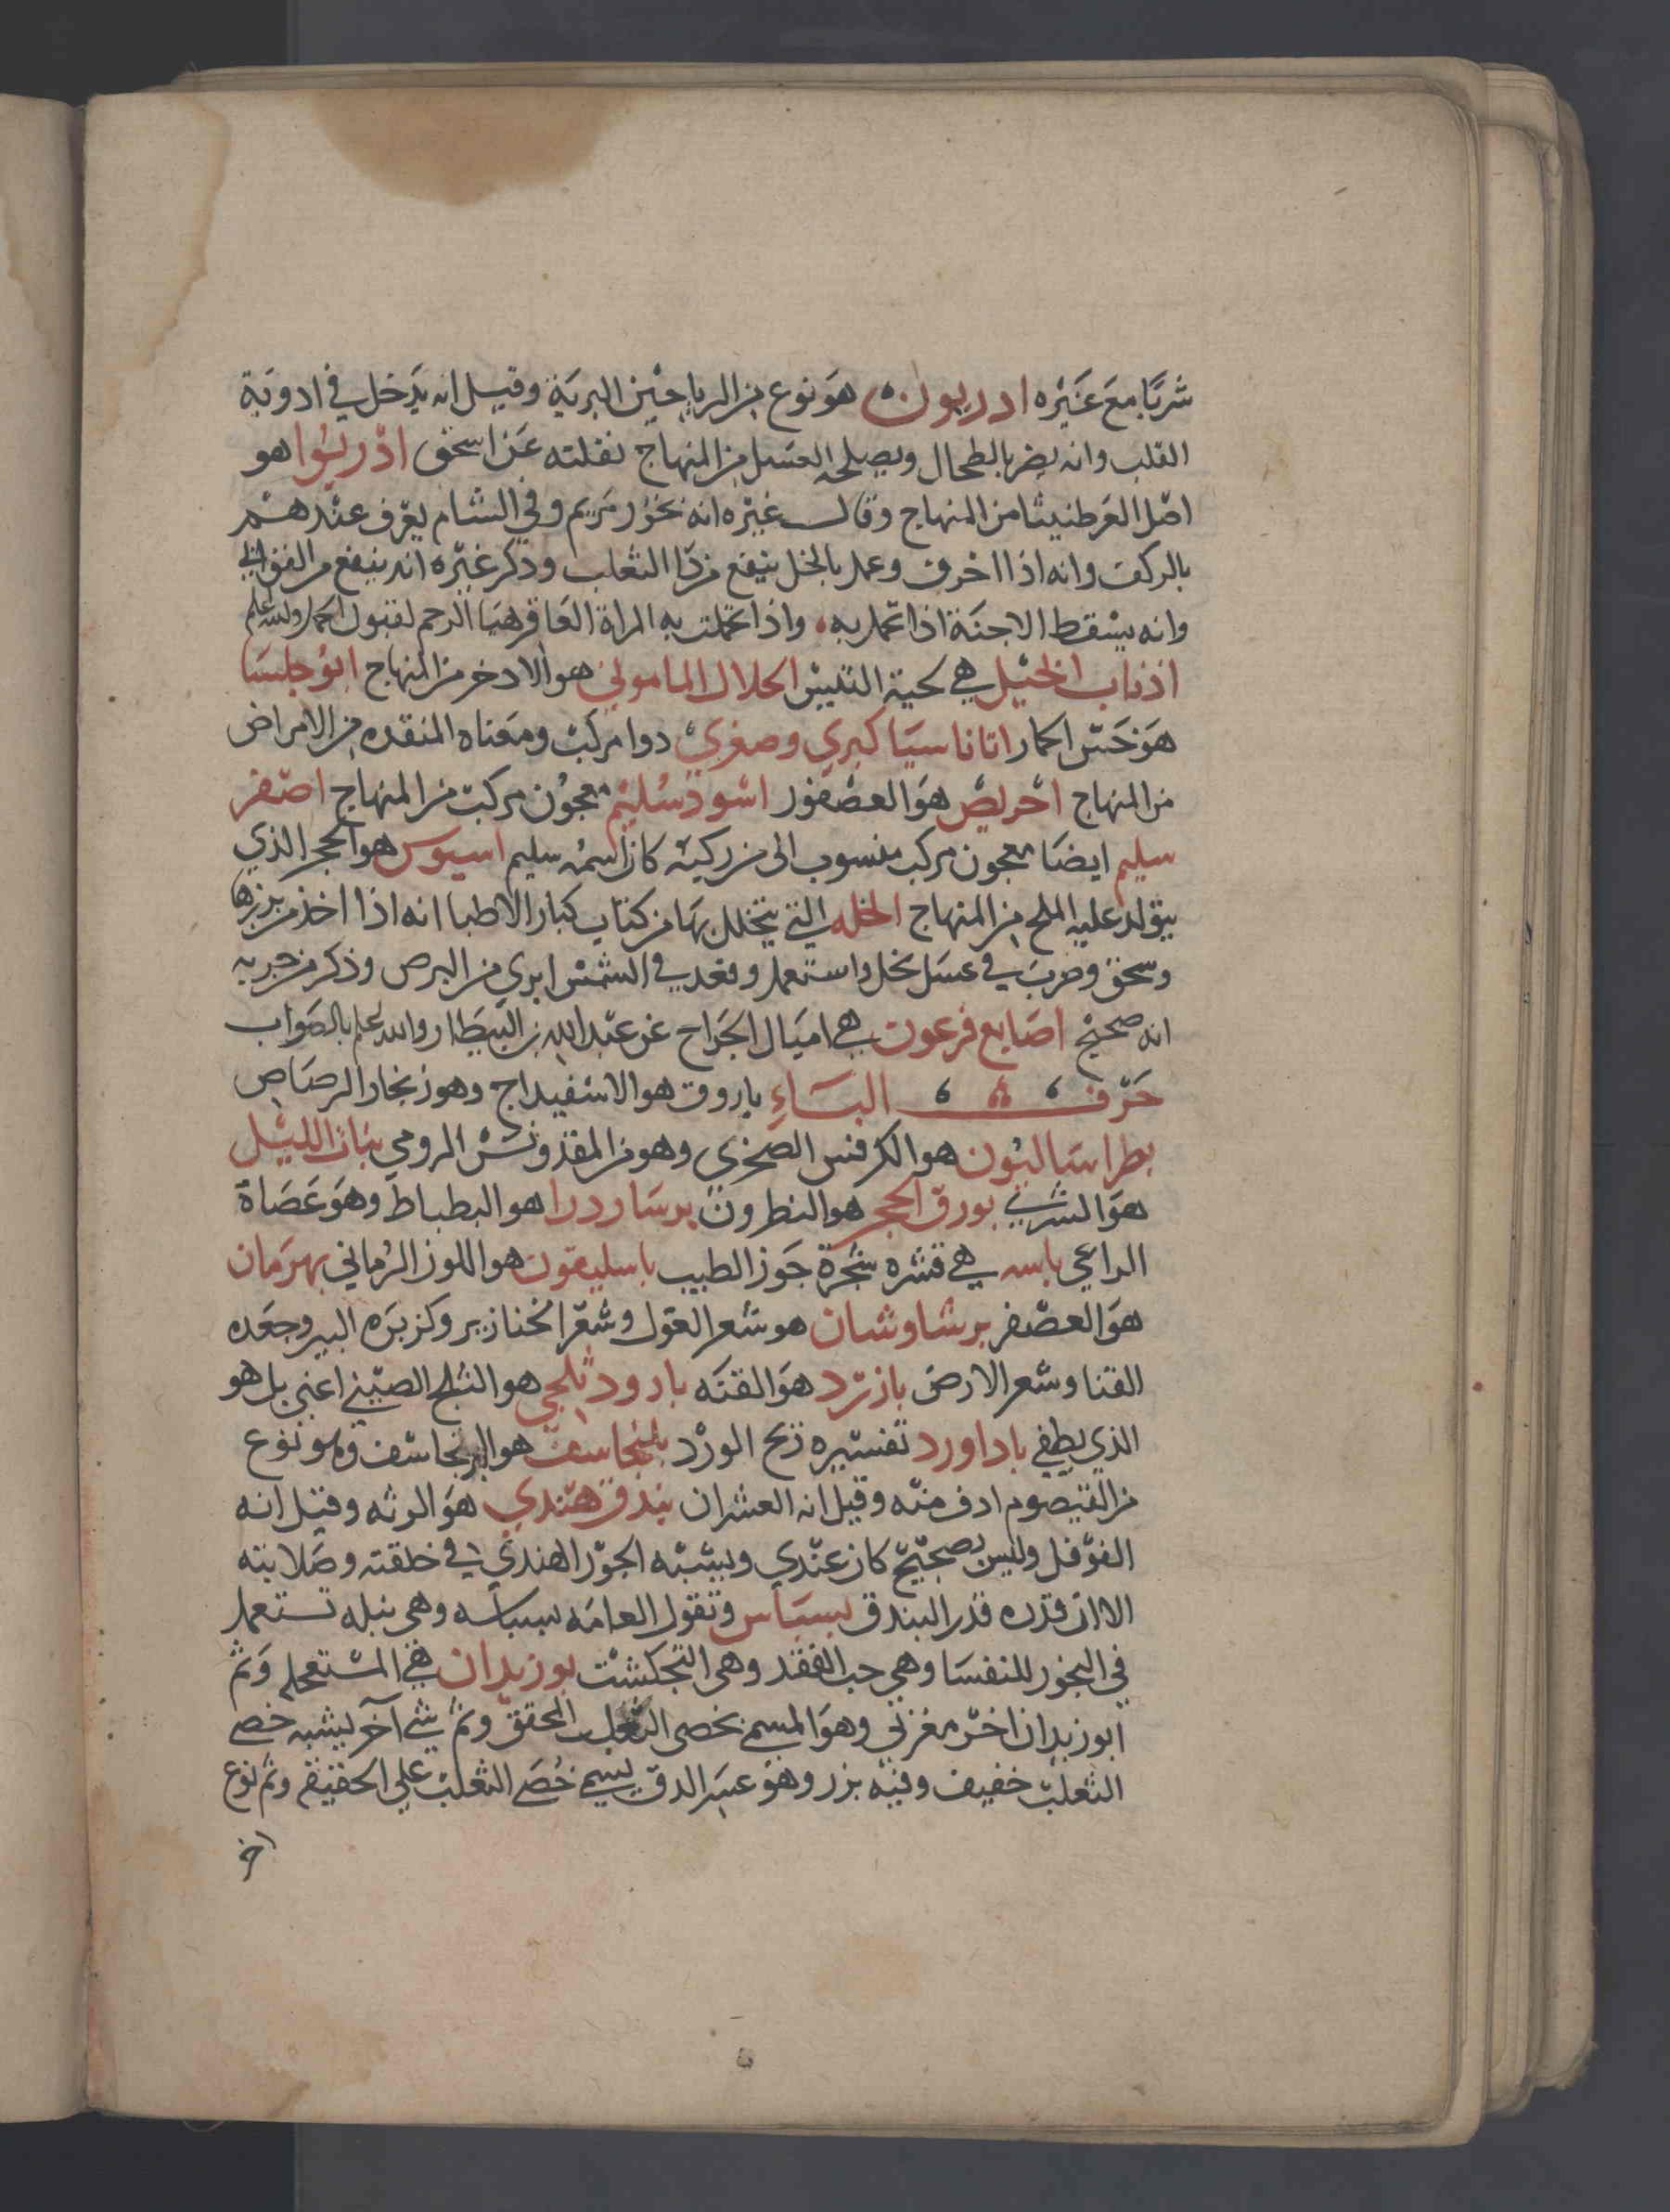 شربا مع غيره ادريون هو نوع من الرياحين البرية وقيل انه يدخل في ادوية
القلب وانه يضر بالطحال ويصلحه العسل من المنهاج نقلته عن اسحق اذريوا هو
اصل العرطنيثا من المنهاج وقال غيره انه بخور مريم وفي الشام يعرف عندهم
بالركف وانه اذا احرق وعمل بالخل ينفع من دا الثعلب وذكر غيره انه ينفع من
وانه يسقط الاجنة اذا تحمل به واذا تحملت به المراة العاقر هيا الرحم لقبول الحمل والله اعلم
اذناب الخيل هي لحية التيس الحلال الماموني هو الادخر من المنهاج ابوجلسا
هو خس الحمار اتاناسيا كبري وصغري دوا مركب ومعناه المنقده من الامراض
من المنهاج احريض هو العصفور اسود سليم معجون مركب من المنهاج اصفر
سليم ايضا معجون مركب منسوب الى من ركبه كان اسمه سليم اسيوس هو الحجر الذي
يتولد عليه الملح من المنهاج الخله التي يتخلل بها من كتاب كبار الاطبا انه اذا اخذ من بزرها
وسحق وضرب في عسل نحل واستعمل وقعد في الشمس ابري من البرص وذكر من جربه
انه صحيح اصابع فرعون هي اميال الجراح عن عبد الله بن البيطار والله اعلم بالصواب
حرف الباء باروق هو الاسفيداج وهو زنجار الرصاص
بطراساليون هو الكرفس الصخري وهو من المقدونس الرومي بنات الليل
هو الشري بورق الحجر هو النطرون برساردرا هو البطباط وهو عصاة
الراعي باسه هي قشره شجرة جوز الطيب باسليقون هو اللوز الرماني بهرمان
هو العصفر برشاوشان هو شعر الغول وشعر الخنازير وكزبره البير وجعده
القنا وشعر الارض بازرد هو القنه بارود ثلجي هو الثلج الصيني اعني بل هو
الذي يطفي باداورد تفسيره ريح الورد هو البرنجاسف وهو نوع
من القيصوم ادق منه وقيل انه العشران بندق هندي هو الرته وقيل انه
الفوفل وليس بصحيح كان عندي ويشبه الجوز الهندي في خلقته وصلابته
الا ان قدره قدر البندق بسباس وتقول العامه بسباسه وهي بنله تستعمل
في البخور للنفسا وهي حب الفقد وهي النجكشت بوزيدان هي المستعجله وثم
ابوزيدان اخر مغربي وهو المسمى بخصى الثعلب المحقق وثم شي آخر يشبه خصى
الثعلب خفيف وفيه بزر وهو عسر الدق يسمى خصى الثعلب علي الحقيقه وثم نوع
اخر